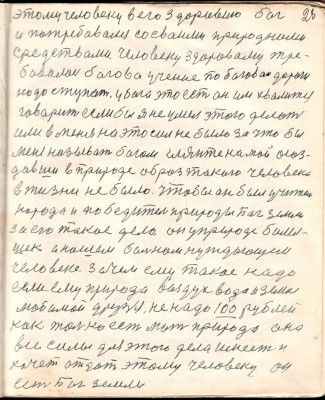 этому человеку в его здоровию бог 25
и потребовалися своими природными
средствами. Человеку здоровому тре-
бовалися богова учение по боговой дороги
надо ступат. у бога это ест он им хвалится
говарит если бы я не умел этого делат
или в меня на это сил не было за что бы
меня называт богом глянте на мой создавши в природе образ такого человека
в жизни не было. Чтобы он был учител
народа и победител природы Бог земли
за его такое дело он у природе
человеке. Зачем ему такое надо
если ему природа воздух вода и земля
любимой друзя, не надо 100 рублей
как тол ко ест мат природа она
все силы для этого дела имеет и
хочет отдат этому человеку он
ест Бог земли